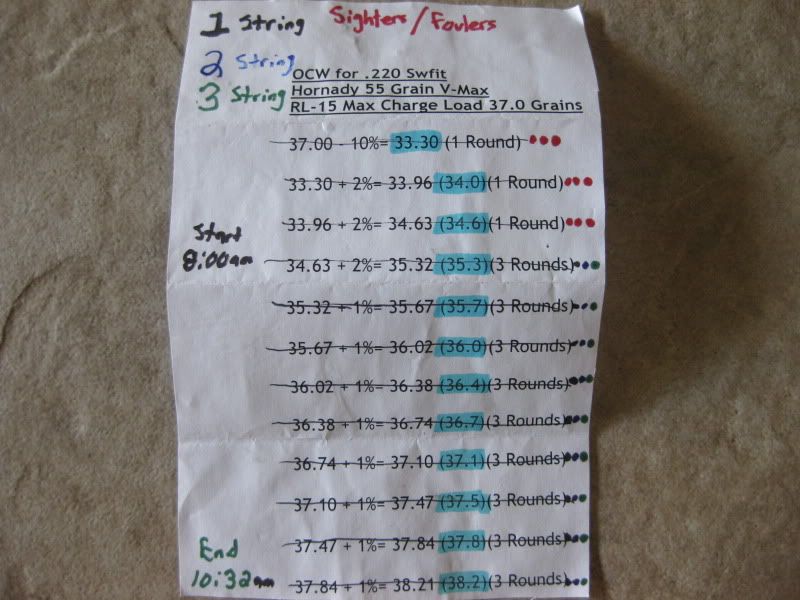 1 String Sighters/Foulers
2 String
3 String
OCW for .220 Swfit
Hornady 55 Grain V-Max
RL-15 Max Charge Load 37.0 Grains
37.00 - 10%= 33.30 (1 Round)
33.30 + 2%= 33.96 (34.0)(1 Round)
33.96 + 2%= 34.63 (34.6)(1 Round)
Start
8:00am
34.63 + 2%= 35.32 (35.3)(3 Rounds)
35.32 + 1%= 35.67 (35.7)(3 Rounds)
35.67 + 1%= 36.02 (36.0)(3 Rounds)
36.02 + 1%= 36.38 (36.4)(3 Rounds)
36.38 + 1%= 36.74 (36.7)(3 Rounds)
36.74 + 1%= 37.10 (37.1)(3 Rounds)
37.10 + 1%= 37.47 (37.5)(3 Rounds)
37.47 + 1%= 37.84 (37.8)(3 Rounds)
End
10:32am
37.84 + 1%= 38.21 (38.2)(3 Rounds)